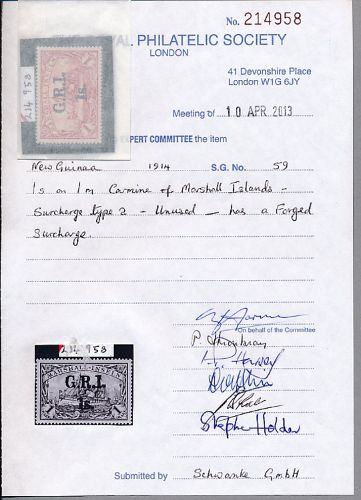 No. 214958
YAL PHILATELIC SOCIETY
LONDON
41 Devonshire Place
London W1G 6JY
Meeting of 10 APR 2013
EXPERT COMMITTEE the item
214 958
G.R.I.
1s.
New Guinea 1914 S.G. No. 59
1s on 1m Carmine of Marshall Islands -
Surcharge type 2 - Unused - has a Forged
Surcharge.
On behalf of the Committee
214 958
MARSHALL-INSELN
G.R.I.
1s.
1 1
Stephen Holder
Submitted by Schwanke GmbH